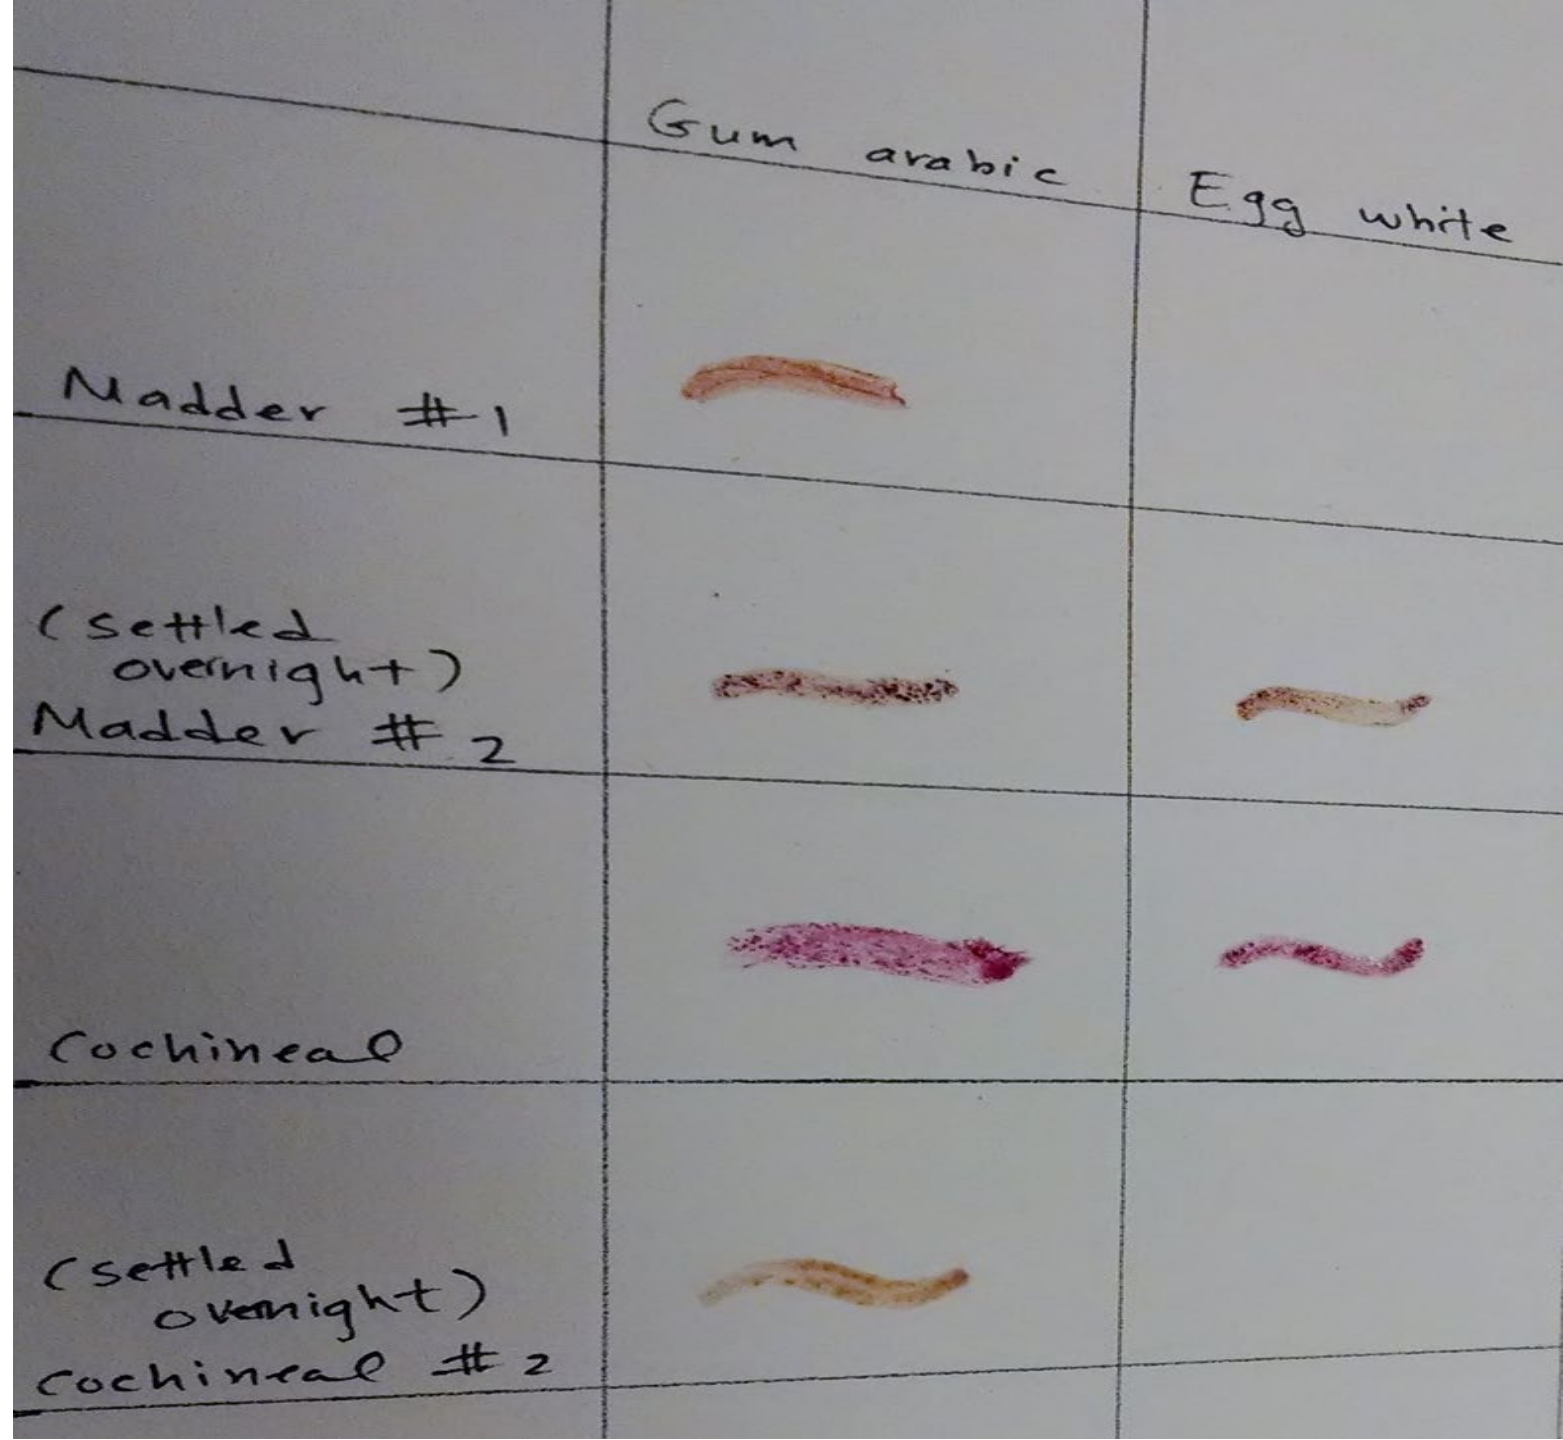 Gum arabic
Egg white
Madder #1
(settled
overnight)
Madder #2
Cochineal
(settled
overnight)
cochineal #2